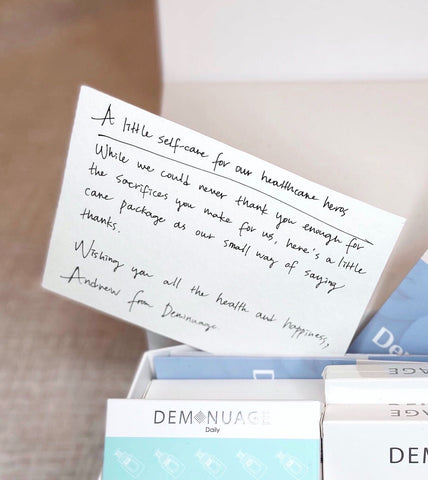 A little self-care for our healthcare heros
While we could never thank you enough for
the sacrifices you make for us, here's a little
care package as our small way of saying
thanks.
Wishing you all the health and happiness,
Andrew from Demonuage.
De
D
UAGE
DEMONUAGE
Daily
DEM